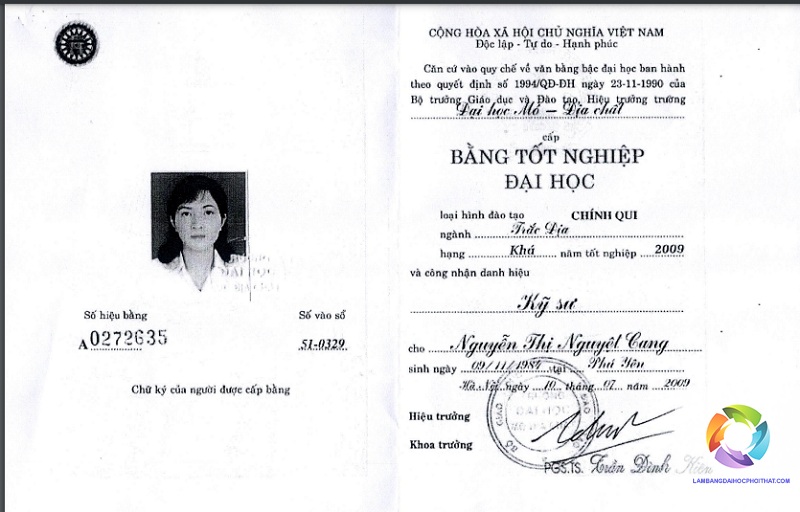 Số hiệu bằng
Số vào sổ
A 0272635
51-0329
Chữ ký của người được cấp bằng
CỘNG HÒA XÃ HỘI CHỦ NGHĨA VIỆT NAM
Độc lập - Tự do - Hạnh phúc
Căn cứ vào quy chế về văn bằng bậc đại học ban hành
theo quyết định số 1994/QĐ-ĐH ngày 23-11-1990 của
Bộ trưởng Giáo dục và Đào tạo, Hiệu trưởng trường
Đại học Mỏ - Địa chất
cấp
BẰNG TỐT NGHIỆP
ĐẠI HỌC
loại hình đào tạo CHÍNH QUI
ngành Trắc Địa
hạng Khá năm tốt nghiệp 2009
và công nhận danh hiệu
Kỹ sư
cho Nguyễn Thị Nguyệt Cang
sinh ngày 09/11/1984 tại Phú Yên
Hà Nội ngày 10 tháng 07 năm 2009
Hiệu trưởng
Khoa trưởng
PGS.TS. Trần Đình Kiên
LAMBANGDAIHOCPHOITHAT.COM